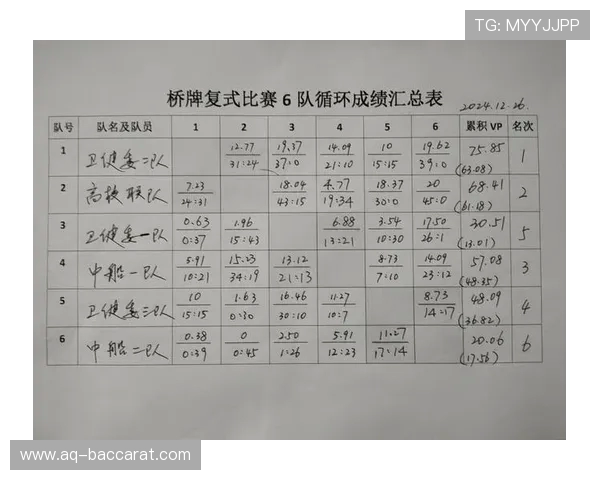 TG: MYYJJPP
桥牌复式比赛 6 队循环成绩汇总表
2024.12.26.
队号 队名及队员 1 2 3 4 5 6 累积 VP 名次
1 卫健委二队 12.77 19.37 14.09 10 19.62 75.85 1
31:24 37:0 21:10 15:15 39:0 (63.08)
2 高校联队 7.23 18.04 4.77 18.37 20 68.41 2
24:31 43:15 19:34 30:0 45:0 (61.18)
3 卫健委一队 0.63 1.96 6.88 3.54 17.50 30.51 5
0:37 15:43 13:21 10:30 26:1 (13.01)
4 中船一队 5.91 15.23 13.12 8.73 14.09 57.08 3
10:21 34:19 21:13 7:10 23:12 (48.35)
5 卫健委三队 10 1.63 16.46 11.27 8.73 48.09 4
15:15 0:30 30:10 10:7 14:17 (36.82)
6 中船二队 0.38 0 2.50 5.91 11.27 20.06 6
0:39 0:45 1:26 12:23 17:14 (17.56)
www.aq-baccarat.com